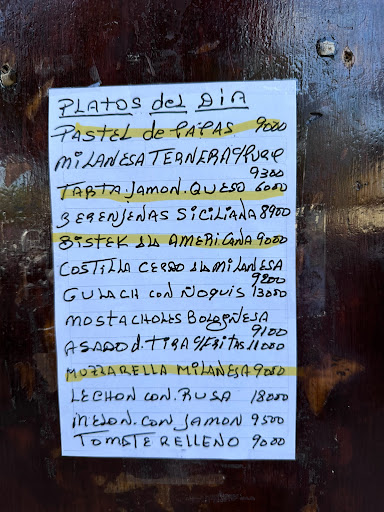 PLATOS del DIA
PASTEL de PAPAS 9000
MILANESA TERNERA C/PURE
9300
TARTA JAMON. QUESO 6000
BERENJENAS SICILIANA 8900
BISTEK A LA AMERICANA 9000
COSTILLA CERDO A LA MILANESA
9200
GULACH CON ÑOQUIS 13000
MOSTACHOLES BOLOGNESA
9100
ASADO d. TIRA C/FRITAS 11000
MUZZARELLA MILANESA 9000
LECHON CON. RUSA 18000
MELON. CON JAMON 9500
TOMATE RELLENO 9000